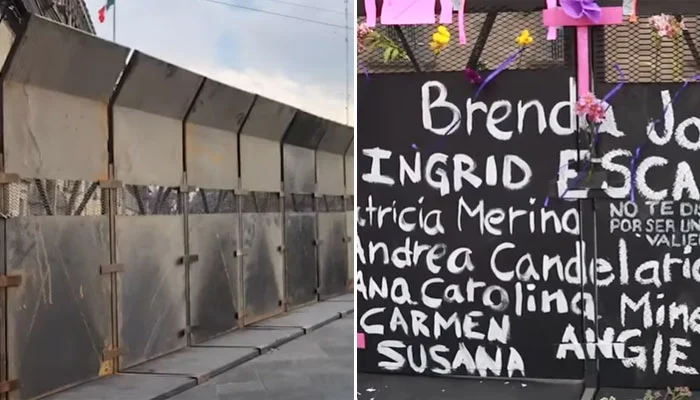 Brenda Jo
INGRID ESCA
atricia Merino
NO TE DE
POR SER UN
VALIE
Andrea Candelari
ANA Carolina Mine
CARMEN ANGIE
SUSANA